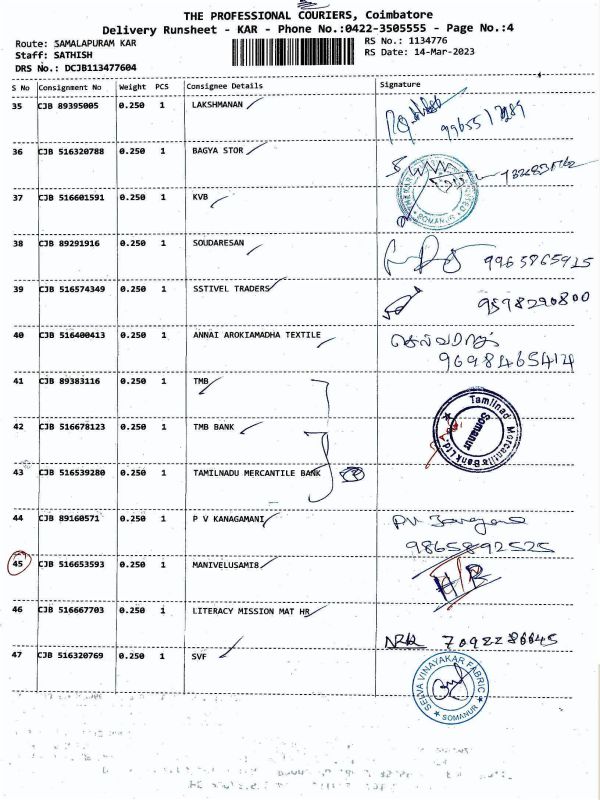 THE PROFESSIONAL COURIERS, Coimbatore
Delivery Runsheet - KAR - Phone No.:0422-3505555 - Page No.:4
Route: SAMALAPURAM KAR
Staff: SATHISH
DRS No.: DCJB113477604
RS No.: 1134776
RS Date: 14-Mar-2023
S No Consignment No Weight PCS Consignee Details Signature
35 CJB 89395005 0.250 1 LAKSHMANAN
36 CJB 516320788 0.250 1 BAGYA STOR
SOMANUR
37 CJB 516601591 0.250 1 KVB
38 CJB 89291916 0.250 1 SOUDARESAN 9965865915
39 CJB 516574349 0.250 1 SSTIVEL TRADERS 9598290800
40 CJB 516400413 0.250 1 ANNAI AROKIAMADHA TEXTILE செல்வராஜ்
9698465414
41 CJB 89383116 0.250 1 TMB
42 CJB 516678123 0.250 1 TMB BANK
Tamilnad Mercantile Bank Ltd.
Somanur
43 CJB 516539280 0.250 1 TAMILNADU MERCANTILE BANK
44 CJB 89160571 0.250 1 P V KANAGAMANI
9865892525
45 CJB 516653593 0.250 1 MANIVELUSAMI8
46 CJB 516667703 0.250 1 LITERACY MISSION MAT HR
47 CJB 516320769 0.250 1 SVF
SELVA VINAYAKAR FABRIC
SOMANUR